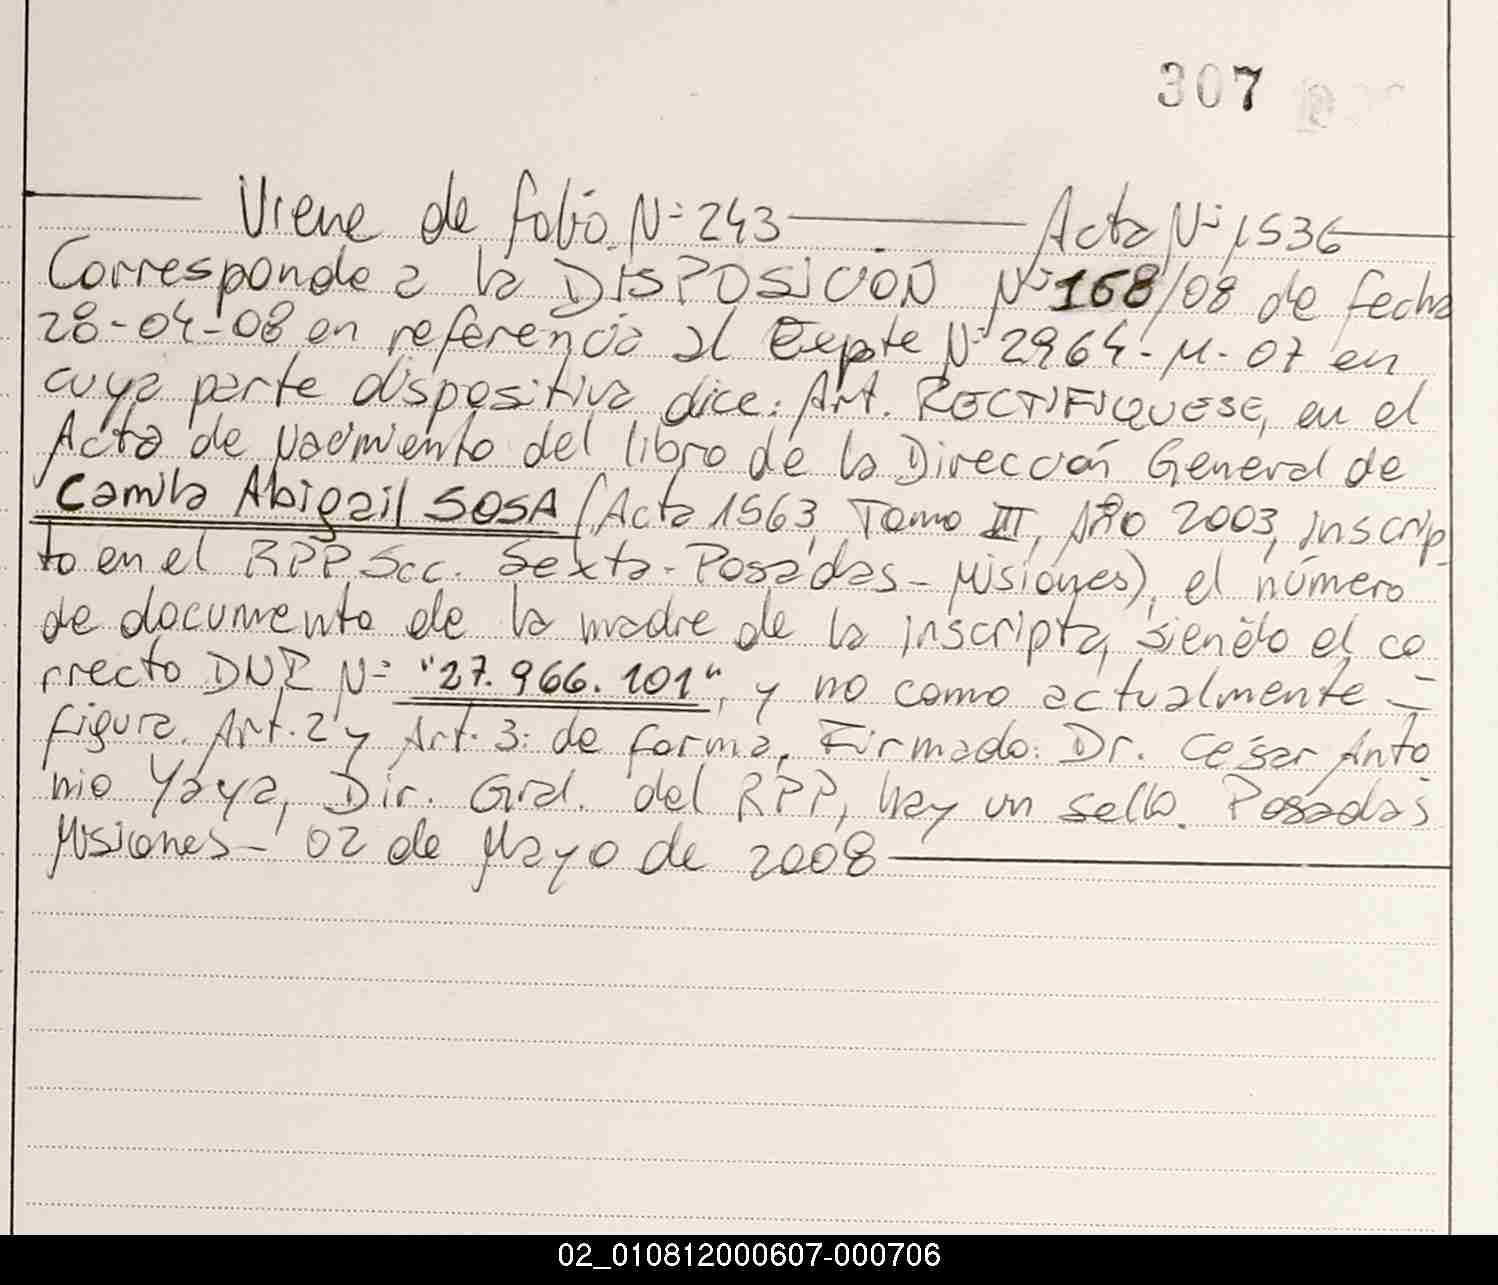 307
Viene de folio N° 243 Acta N° 1536
Corresponde a la DISPOSICIÓN N° 168/08 de fecha
28-04-08 en referencia al Expte N° 2964-M-07 en
cuya parte dispositiva dice: Art. RECTIFIQUESE, en el
Acta de Nacimiento del libro de la Dirección General de
Camila Abigail SOSA (Acta 1563, Tomo III, Año 2003, inscrip
to en el RPP, Scc. Sexta - Posadas - Misiones), el número
de documento de la madre de la inscripta, siendo el co
rrecto DNI N° "27.966.101", y no como actualmente -
figura. Art. 2 y Art. 3: de forma, Firmado: Dr. César Anto
nio Yaya, Dir. Gral. del RPP, hay un sello. Posadas
Misiones - 02 de Mayo de 2008
02_010812000607-000706